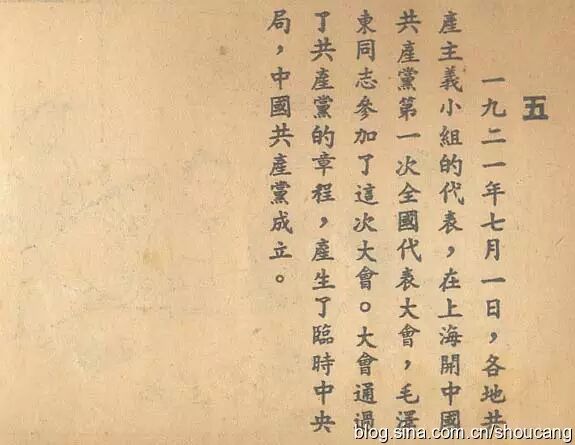 五
一九二一年七月一日，各地共
產主義小組的代表，在上海開中國
共產黨第一次全國代表大會，毛澤
東同志參加了這次大會。大會通過
了共產黨的章程，產生了臨時中央
局，中國共產黨成立。
blog.sina.com.cn/shoucang